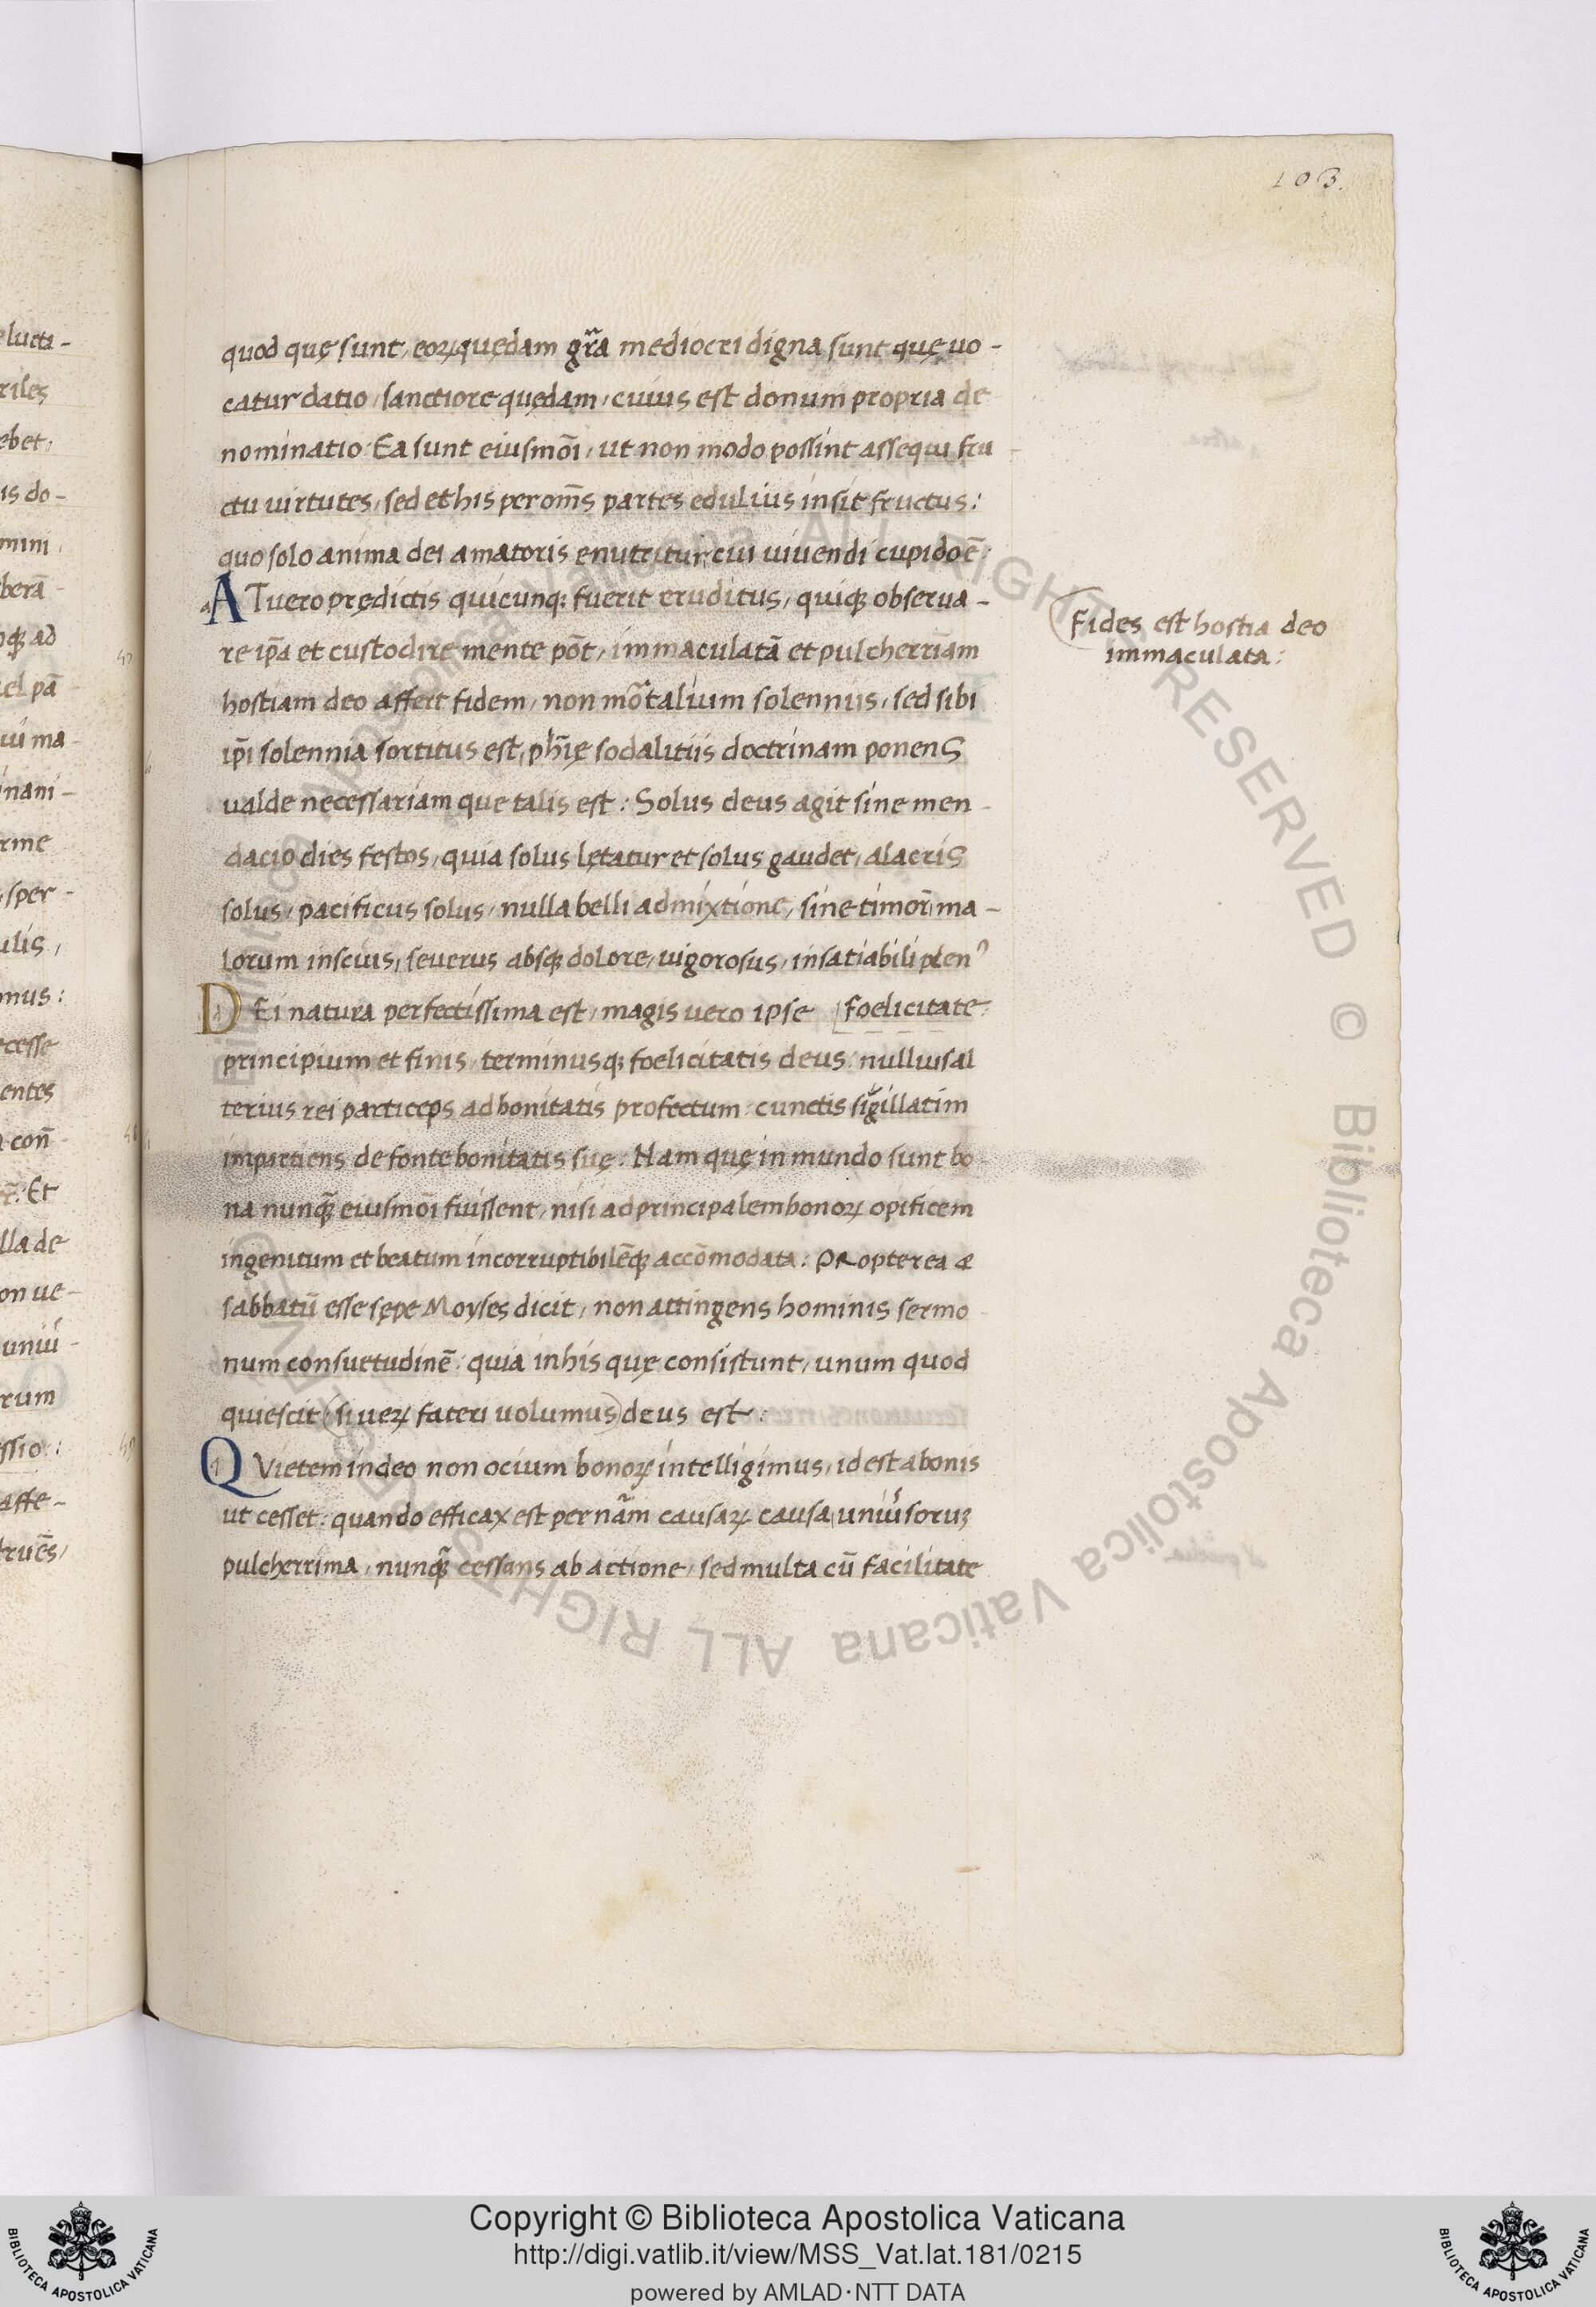 103.
elucti-
riles
ebet,
is do-
mini,
berā-
oq̃ ad
uel pā-
uii ma-
inani-
rme
, sper-
ulis,
onus:
ecesse
entes
con̄
r̃: Et
lla de
on ue-
uniu᷑-
rum
ssio:
affe-
truēs,
quod quę sunt, eoꝝ quędam gr̃a mediocri digna sunt quę uo-
catur datio, sanctiore quędam, cuius est donum propria de
nominatio: Ea sunt eiusmōi, ut non modo possint assequi fru
ctu uirtutes, sed et his per om̄s partes edulius insit fructus:
quo solo anima dei amatoris enutritur, cui uiuendi cupido ē:
AT uero prędictis quicunq; fuerit eruditus, quiq̃ obserua-
re ip̄a et custodire mente pōt, immaculatā et pulcherriam
hostiam deo affert fidem, non mōtalium solenniis, sed sibi
ip̄i solennia sortitus est, ph̄ię sodalitiis doctrinam ponens
ualde necessariam que talis est: Solus deus agit sine men-
dacio dies festos, quia solus lętatur et solus gaudet, alacris
solus, pacificus solus, nulla belli admixtione, sine timor̄, ma-
lorum inscius, seuerus absq̃ dolore, uigorosus, insatiabili plenꝰ
DEi natura perfectissima est, magis uero ipse [foelicitate:
principium et finis, terminusq; foelicitatis deus: nullius al
terius rei particeps ad bonitatis profectum: cunctis sigillatim
impartiens de fonte bonitatis suę: Nam quę in mundo sunt bo-
na nunq̃ eiusmōi fuissent, nisi ad principalem bonoꝝ opificem
ingenitum et beatum incorruptibilēq̃ accōmodata: PRopterea æ
sabbatū esse sępe Moyses dicit, non attingens hominis sermo-
num consuetudinē: quia in his quę consistunt, unum quod
quiescit (si ueꝝ fateri uolumus) deus est:
QVietem in deo non ocium bonoꝝ intelligimus, id est a bonis
ut cesset: quando efficax est per nãm causaꝝ causa, uniu᷑soruꝫ
pulcherrima, nunq̃ cessans ab actione, sed multa cū facilitate
Fides est hostia deo
immaculata:
Copyright © Biblioteca Apostolica Vaticana
http://digi.vatlib.it/view/MSS_Vat.lat.181/0215
powered by AMLAD·NTT DATA
BIBLIOTECA APOSTOLICA VATICANA
BIBLIOTECA APOSTOLICA VATICANA
© Biblioteca Apostolica Vaticana ALL RIGHTS RESERVED © Biblioteca Apostolica Vaticana ALL RIGHTS RESERVED